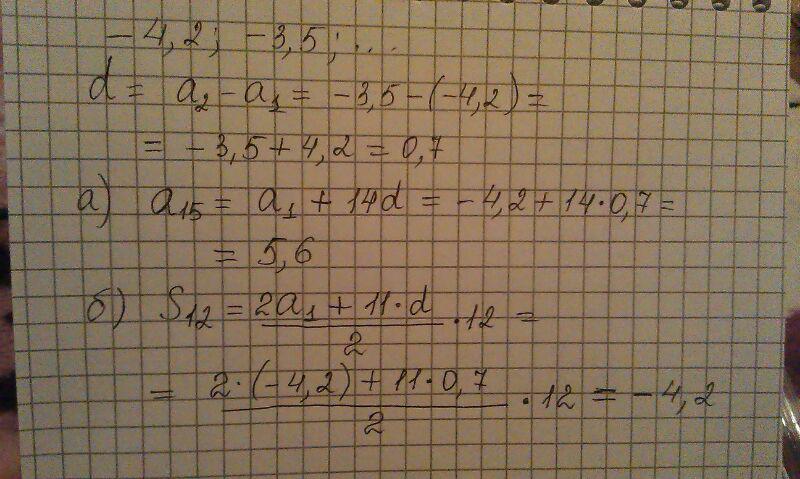 -4,2; -3,5; ...
d = a₂ - a₁ = -3,5 - (-4,2) =
= -3,5 + 4,2 = 0,7
а) a₁₅ = a₁ + 14d = -4,2 + 14·0,7 =
= 5,6
б) S₁₂ = (2a₁ + 11·d)/2 · 12 =
= (2·(-4,2) + 11·0,7)/2 · 12 = -4,2